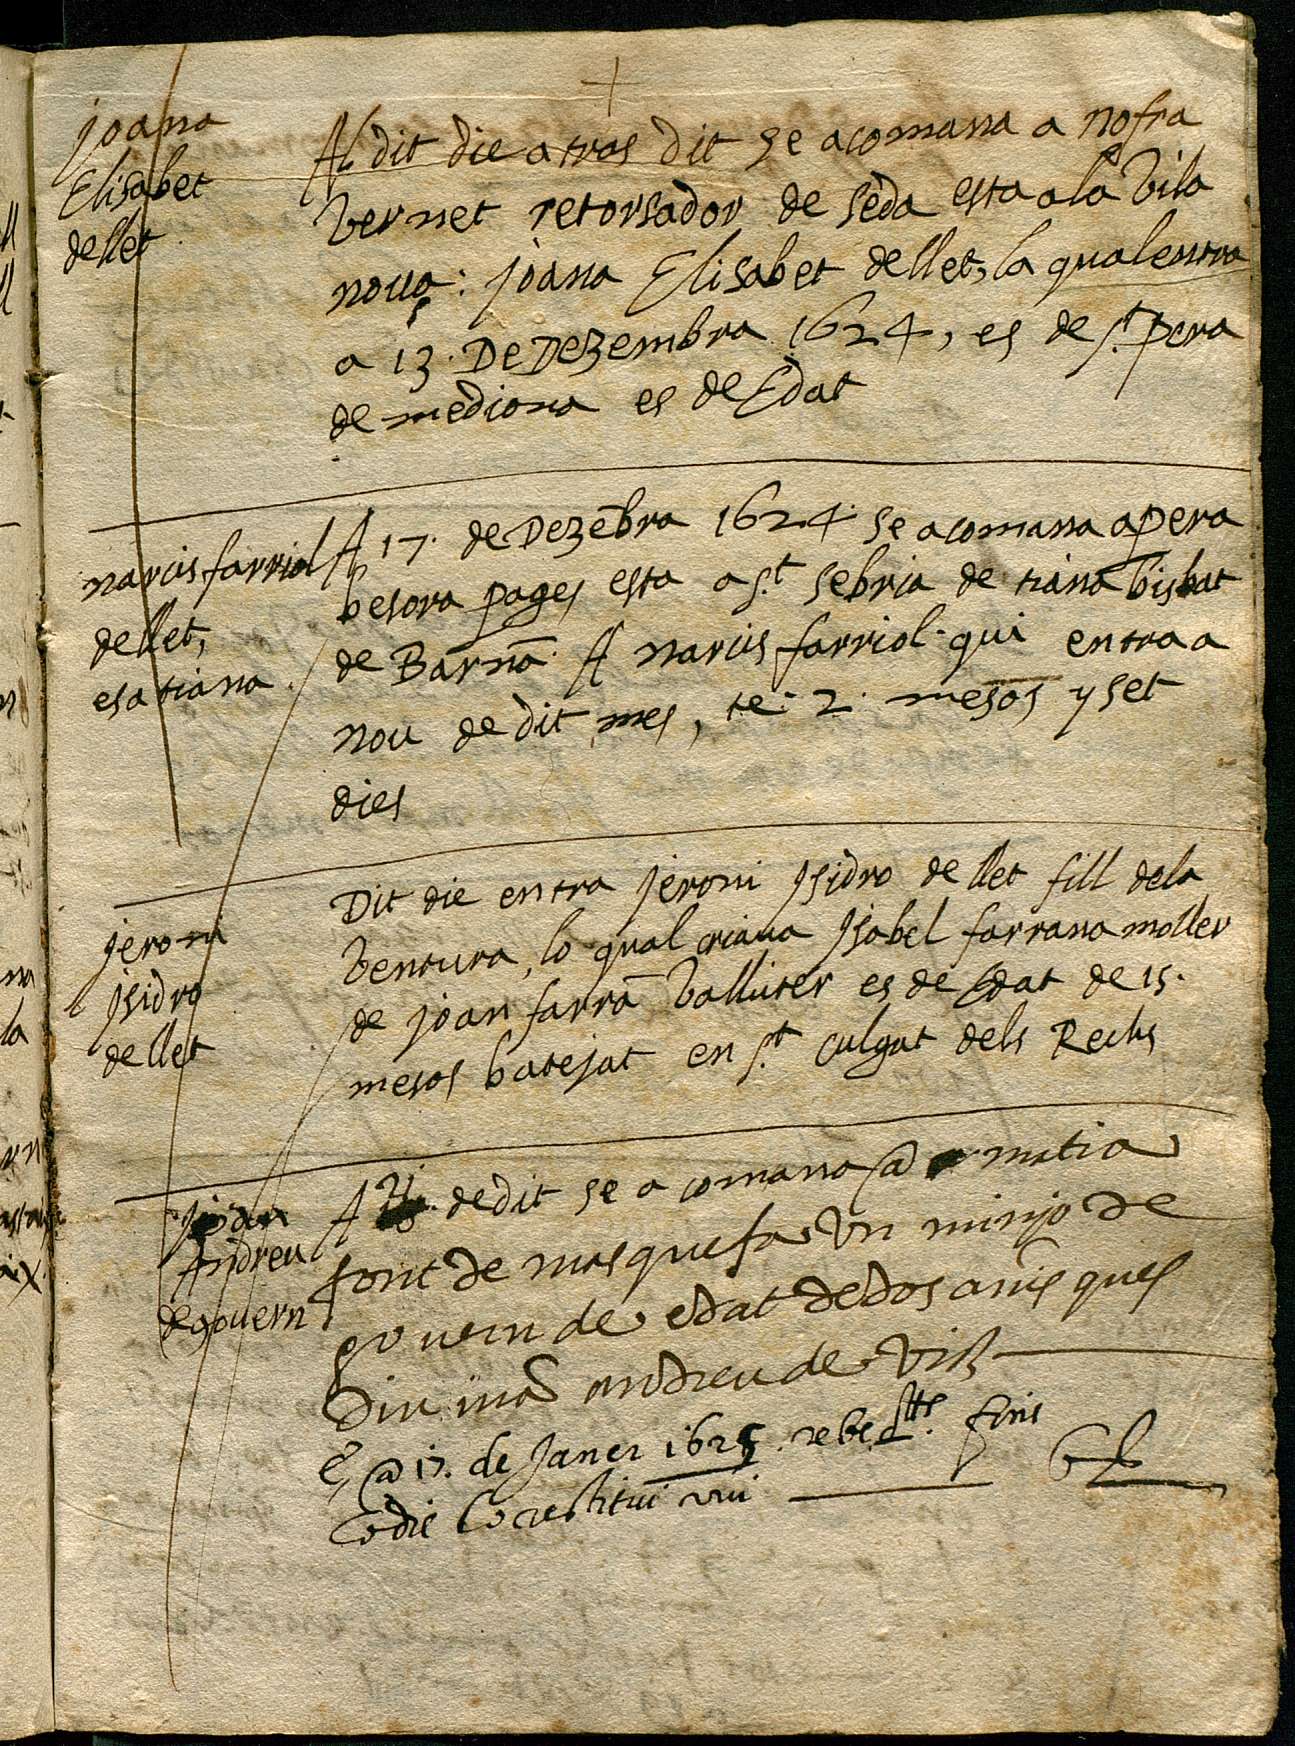 joana
Elisabet
de llet
Al dit die atras dit se acomana a nofra
vernet retorsador de seda esta a la vila
noua: joana Elisabet de llet, la qual entra
a 13 · De Dezembra 1624, es de st. pera
de mediona es de Edat
narcis farriol
de llet,
es a tiana
A 17 · de Dezēbra 1624 · se acomana a pera
besora pages esta a st. sebria de tiana bisbat
de Barna · A narcis farriol · qui entra a
nou de dit mes, te · 2 · mesos y set
dies
jeroni
jsidro
de llet
Dit die entra jeroni jsidro de llet fill de la
ventura, lo qual criaua jsabel farrana moller
de joan farrā valluter es de Edat de 15 ·
mesos batejat en st. culgat dels Rechs
joan
Andreu
de gouern
A · de dit se acomana @ matia
font de masquefa vn minjo de
gouern de edat de dos anis ques
Diu andreu de
@ 17. de Janer 1625 . rebe fins